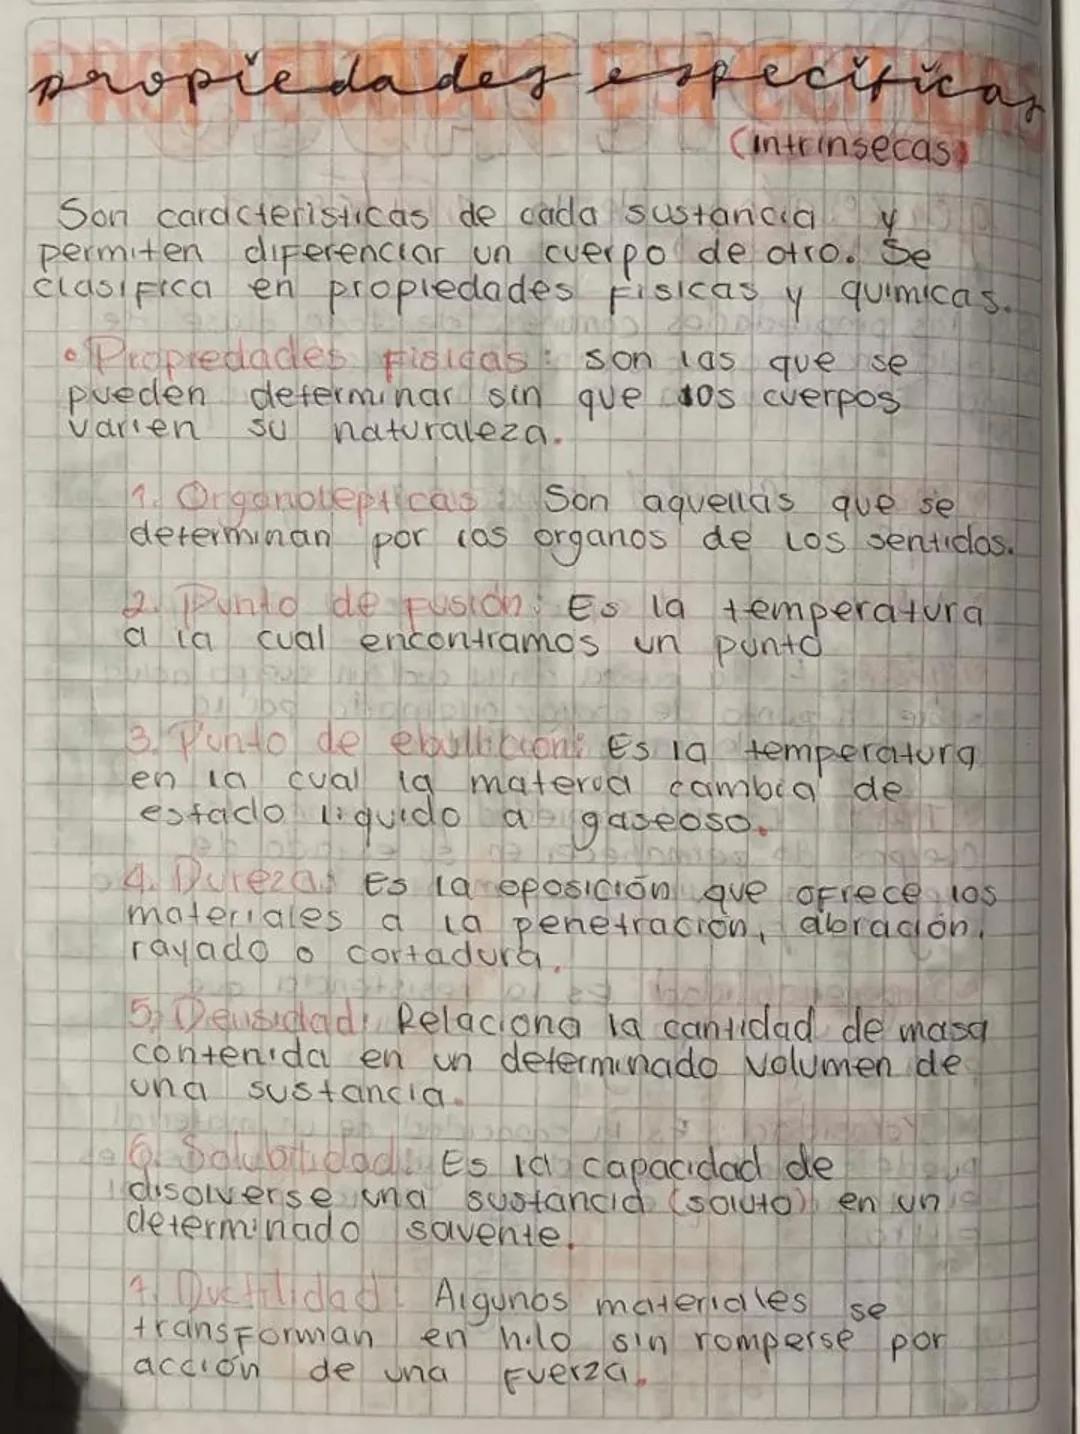 propiedades específicas
(intrinsecas)
Son caracteristicas de cada sustancia y
permiten diferenciar un cuerpo de otro. Se
clasifica en propiedades fisicas y quimicas.
• Propiedades fisicas: son las que se
pueden determinar sin que los cuerpos
varien su naturaleza.
1. Organolepticas: Son aquellas que se
determinan por los organos de los sentidos.
2. Punto de fusión: Es la temperatura
a la cual encontramos un punto
3. Punto de ebullicion: Es la temperatura
en la cual la materia cambia de
estado liquido a gaseoso.
4. Dureza: Es la oposición que ofrece los
materiales a la penetración, abración,
rayado o cortadura.
5. Densidad: Relaciona la cantidad de masa
contenida en un determinado volumen de
una sustancia.
6. Solubilidad: Es la capacidad de
disolverse una sustancia (soluto) en un
determinado savente.
7. Ductilidad: Algunos materiales se
transforman en hilo sin romperse por
acción de una fuerza.